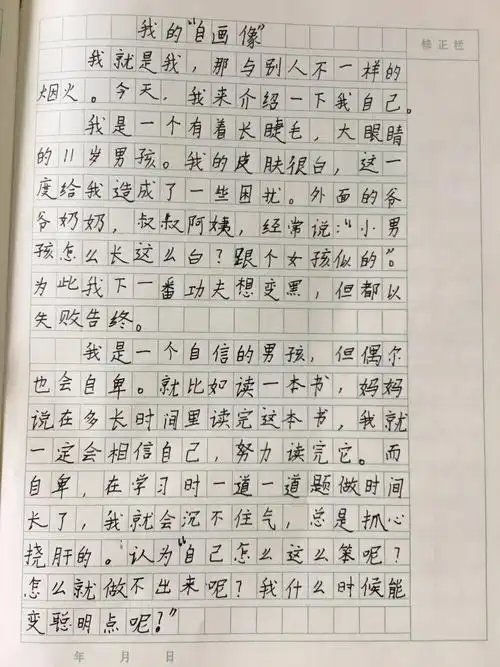 我的"自画像"
我就是我，那与别人不一样的
烟火。今天，我来介绍一下我自己。
我是一个有着长睫毛，大眼睛
的11岁男孩。我的皮肤很白，这一
度给我造成了一些困扰。外面的爷
爷奶奶，叔叔阿姨，经常说："小男
孩怎么长这么白？跟个女孩似的"。
为此我下一番功夫想变黑，但都以
失败告终。
我是一个自信的男孩，但偶尔
也会自卑。就比如读一本书，妈妈
说在多长时间里读完这本书，我就
一定会相信自己，努力读完它。而
自卑，在学习时一道一道题做时间
长了，我就会沉不住气，总是抓心
挠肝的。认为"自己怎么这么笨呢？
怎么就做不出来呢？我什么时候能
变聪明点呢？"
修正栏
年 月 日